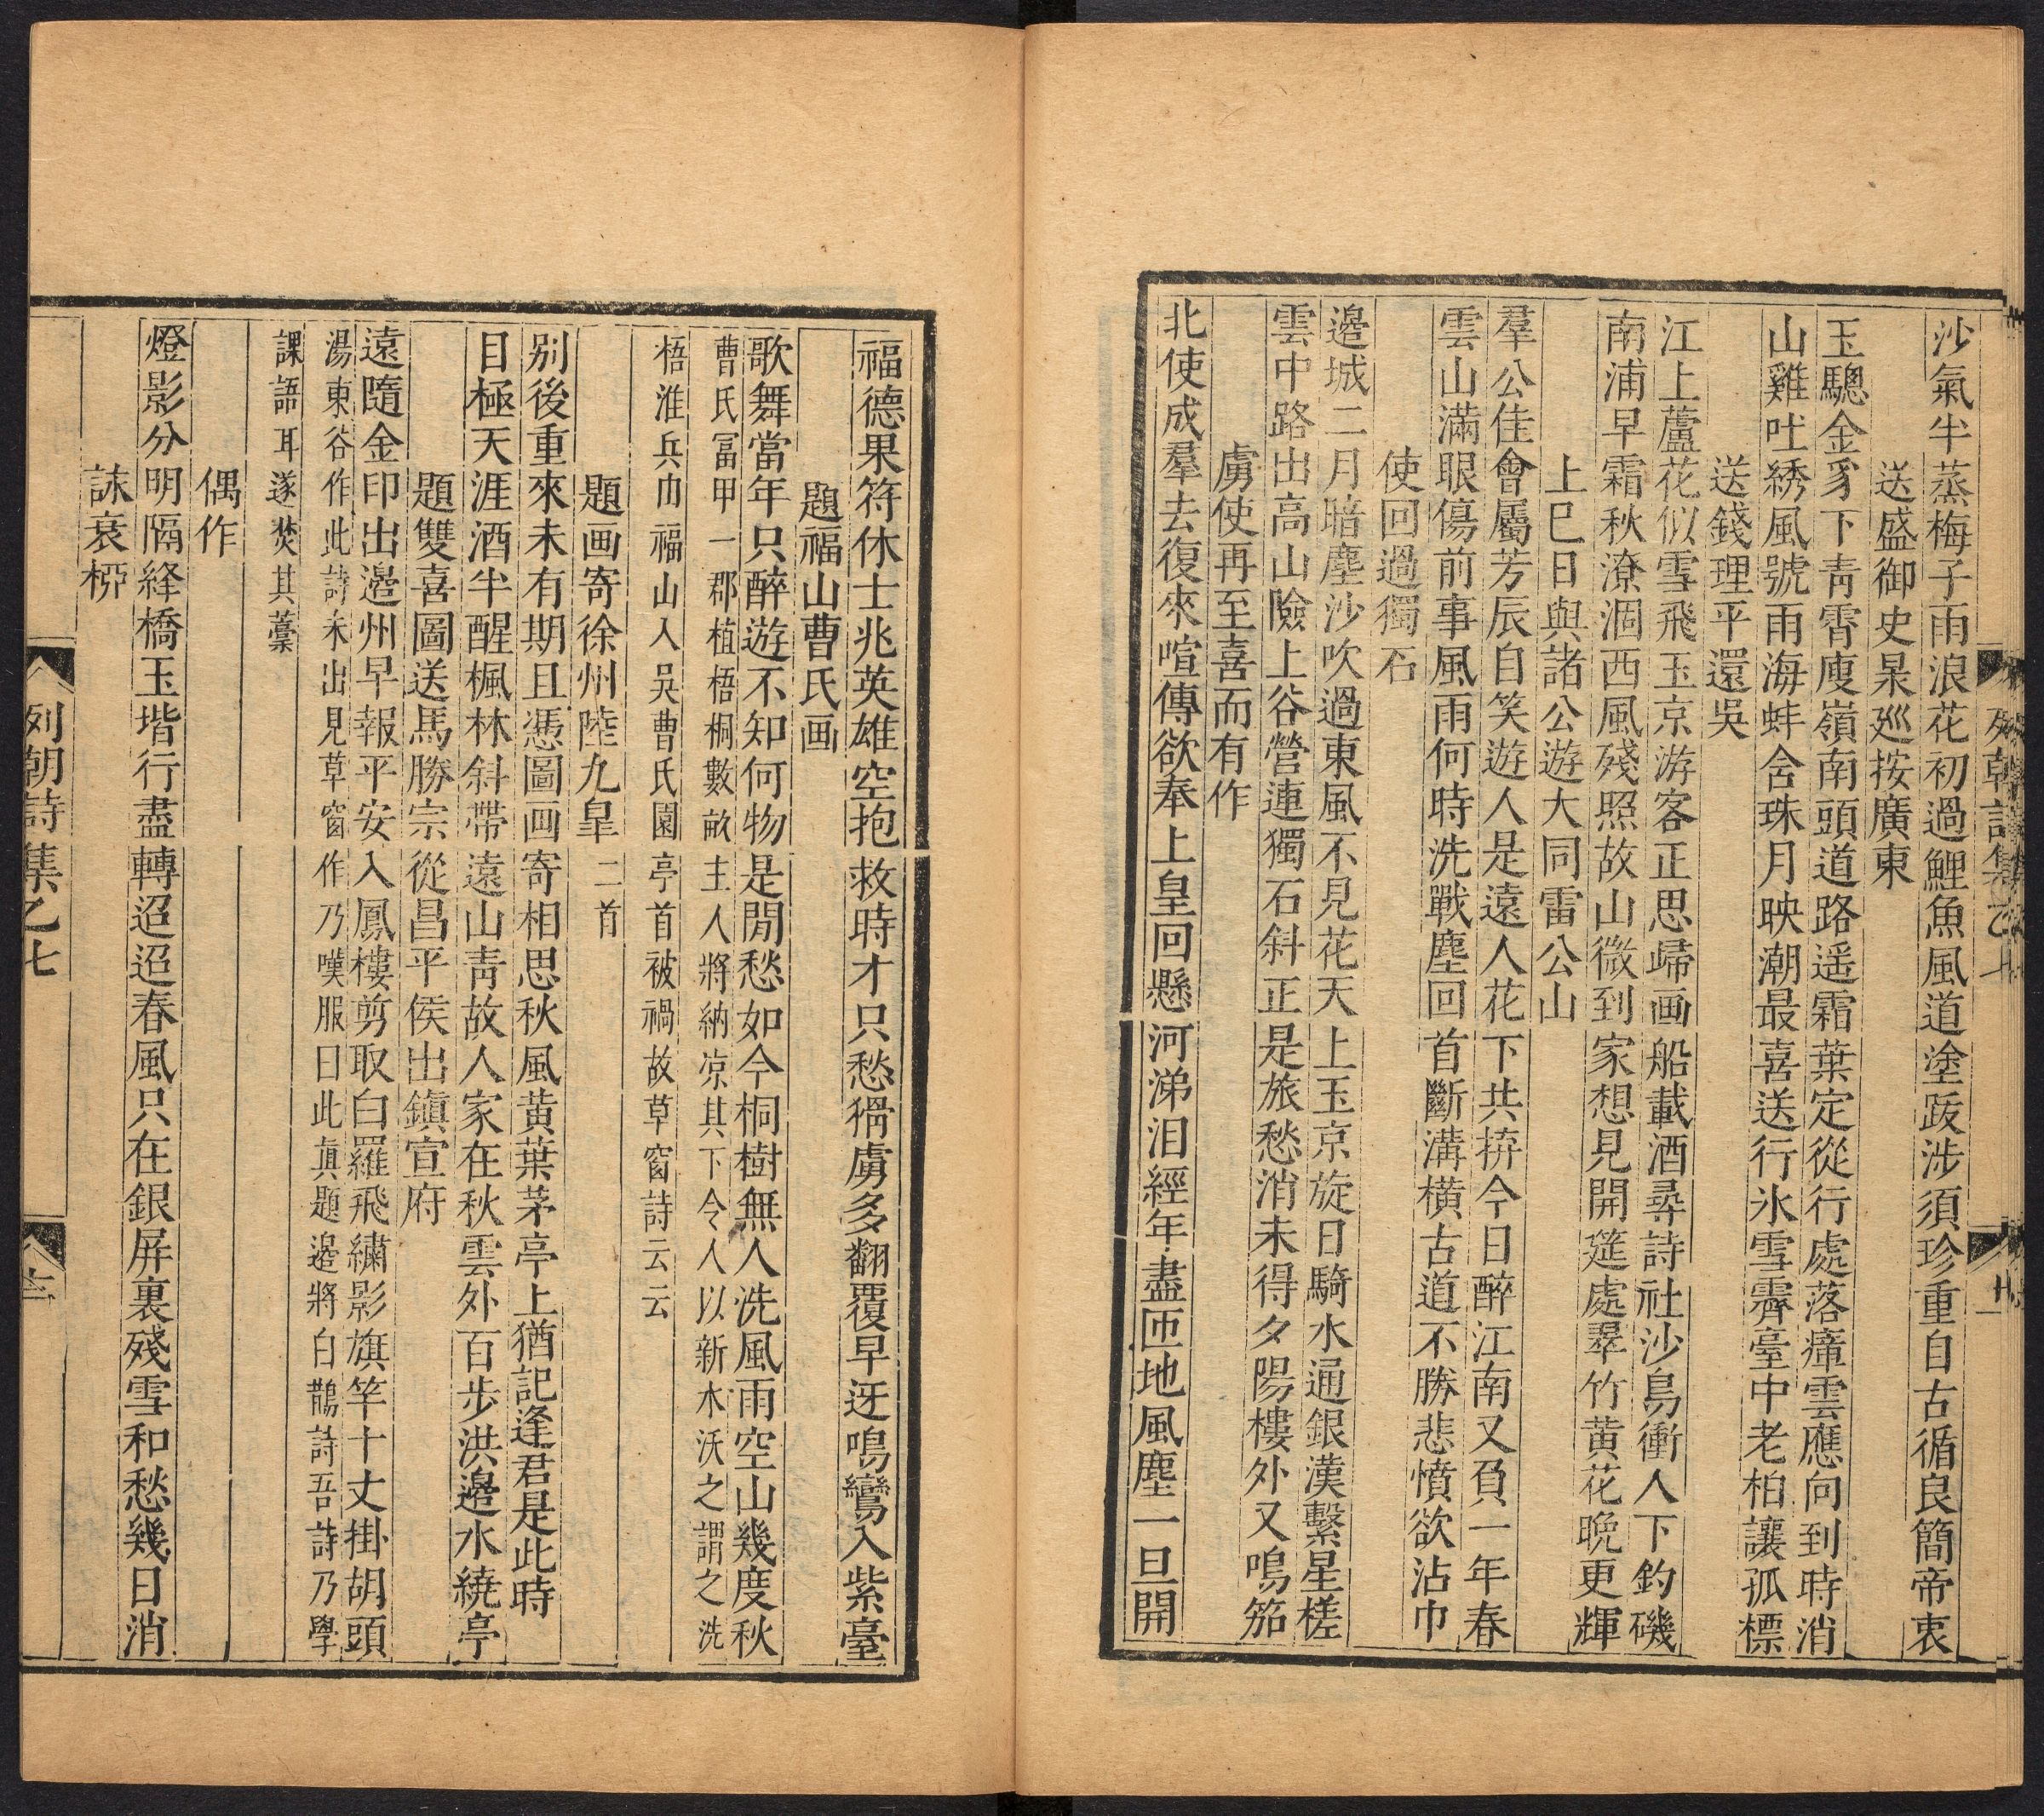 沙氣半蒸梅子雨浪花初過鯉魚風道塗跋涉須珍重自古循良簡帝衷
送盛御史杲廵按廣東
玉驄金豸下青霄庾嶺南頭道路遥霜葉定從行處落瘴雲應向到時消
山雞吐綉風號雨海蚌舍珠月映潮最喜送行氷雪霽臺中老柏讓孤標
送錢理平還吳
江上蘆花似雪飛玉京游客正思歸画船載酒尋詩社沙鳥衝人下釣磯
南浦早霜秋潦涸西風殘照故山微到家想見開筵處翠竹黄花晚更輝
上巳日與諸公遊大同雷公山
羣公佳會屬芳辰自笑遊人是遠人花下共拚今日醉江南又負一年春
雲山滿眼傷前事風雨何時洗戰塵回首斷溝橫古道不勝悲憤欲沾巾
使回過獨石
邉城二月暗塵沙吹過東風不見花天上玉京旋日騎水通銀漢繫星槎
雲中路出高山險上谷營連獨石斜正是旅愁消未得夕陽樓外又鳴笳
虜使再至喜而有作
北使成羣去復來喧傳欲奉上皇回懸河涕泪經年盡匝地風塵一旦開
福德果符休士兆英雄空抱救時才只愁猾虜多翻覆早迓鳴鸞入紫臺
題福山曹氏画
歌舞當年只醉遊不知何物是閒愁如今桐樹無人洗風雨空山幾度秋
曹氏冨甲一郡植梧桐數畝主人將納凉其下令人以新水沃之謂之洗
梧淮兵巾福山入吳曹氏園亭首被禍故草窗詩云云
題画寄徐州陸九皐二首
别後重來未有期且憑圖画寄相思秋風黄葉茅亭上猶記逢君是此時
目極天涯酒半醒楓林斜帶遠山青故人家在秋雲外百步洪邉水繞亭
題雙喜圖送馬勝宗從昌平侯出鎭宣府
遠隨金印出邉州早報平安入鳳樓剪取白羅飛繡影旗竿十丈掛胡頭
湯東谷作此詩未出見草窗作乃嘆服曰此眞題邉將白鵲詩吾詩乃學
課語耳遂焚其藁
偶作
燈影分明隔絳橋玉堦行盡轉迢迢春風只在銀屏裏殘雪和愁幾日消
詠衰栁
列朝詩集乙七